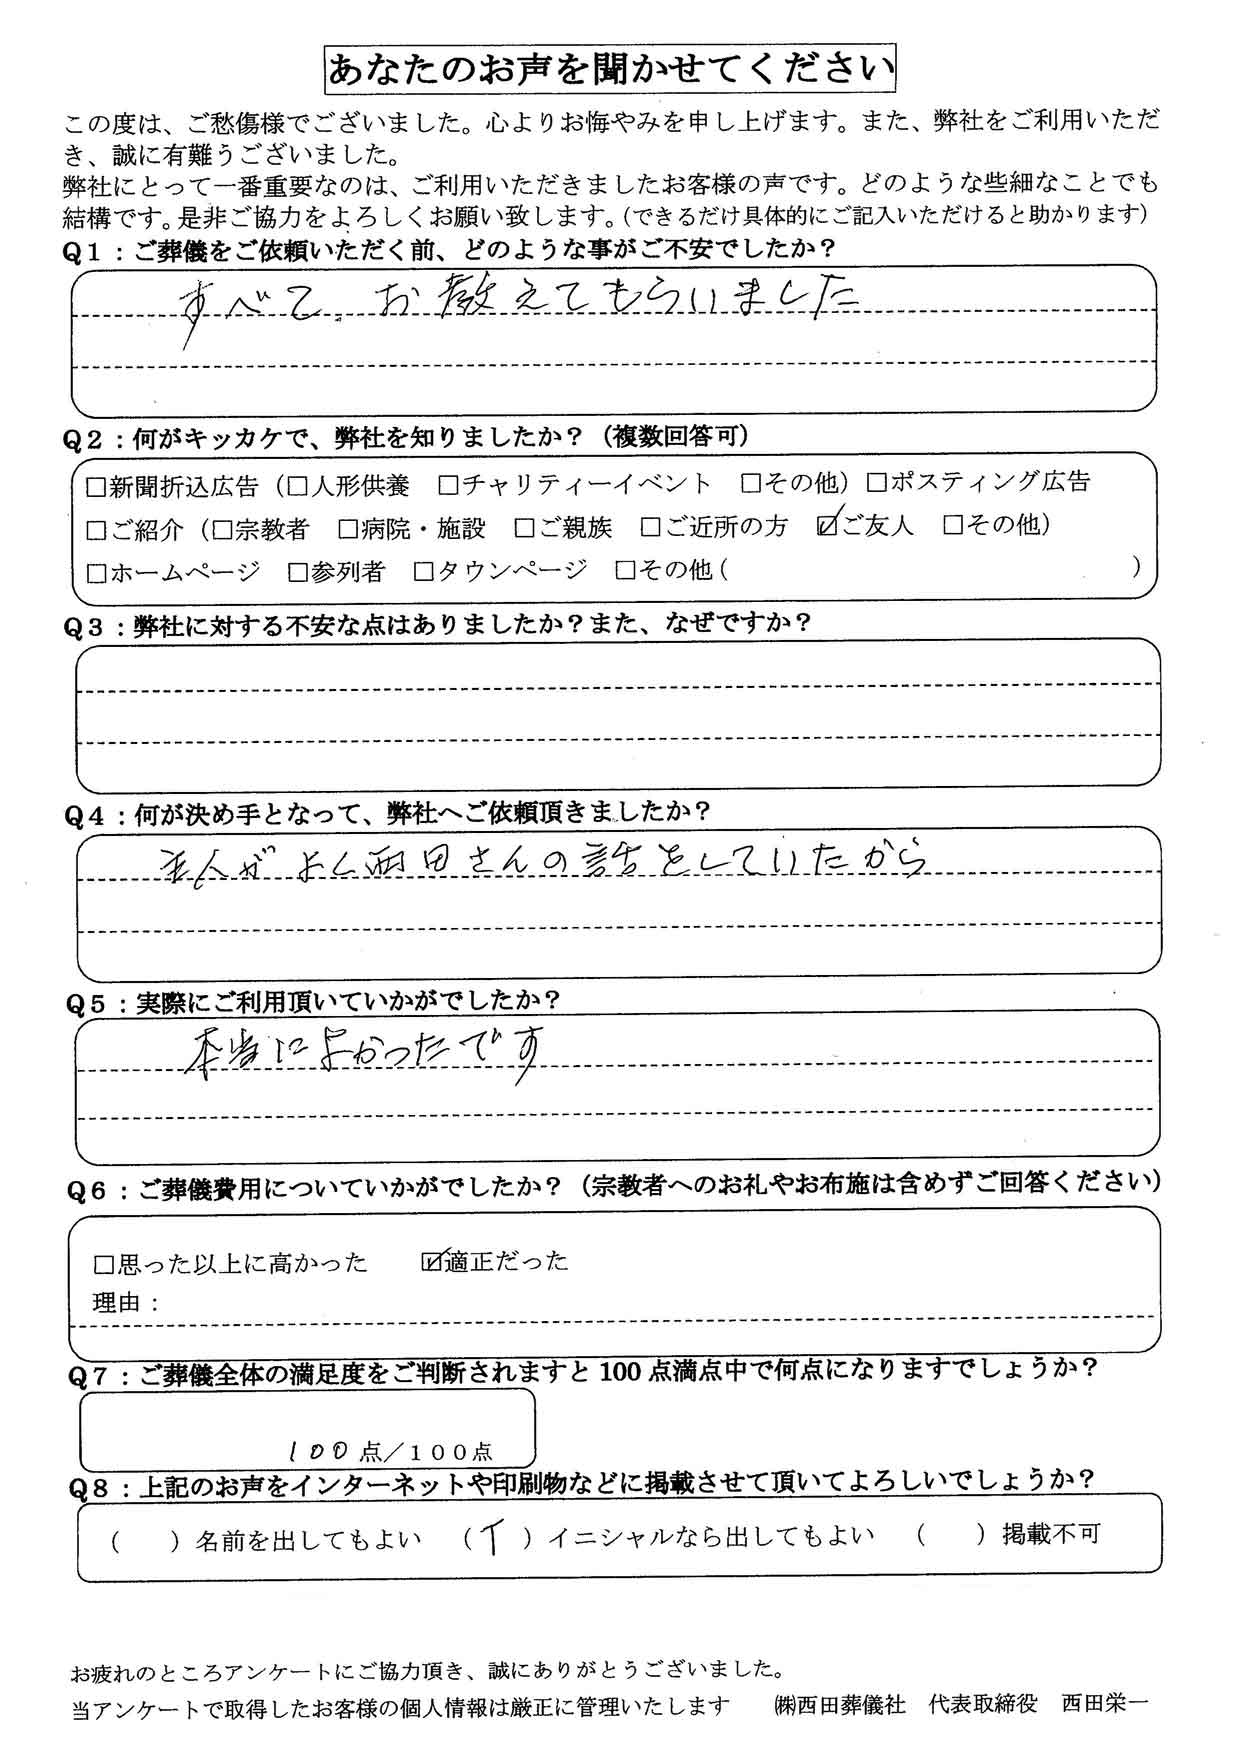 あなたのお声を聞かせてください
この度は、ご愁傷様でございました。心よりお悔やみを申し上げます。また、弊社をご利用いただ
き、誠に有難うございました。
弊社にとって一番重要なのは、ご利用いただきましたお客様の声です。どのような些細なことでも
結構です。是非ご協力をよろしくお願い致します。(できるだけ具体的にご記入いただけると助かります)
Q1：ご葬儀をご依頼いただく前、どのような事がご不安でしたか？
すべて、お教えてもらいました
Q2：何がキッカケで、弊社を知りましたか？（複数回答可）
□新聞折込広告（□人形供養　□チャリティーイベント　□その他）□ポスティング広告
□ご紹介（□宗教者　□病院・施設　□ご親族　□ご近所の方　☑ご友人　□その他）
□ホームページ　□参列者　□タウンページ　□その他（　　　　　　　　　　　　　　　　）
Q3：弊社に対する不安な点はありましたか？また、なぜですか？
Q4：何が決め手となって、弊社へご依頼頂きましたか？
主人がよく西田さんの話をしていたから
Q5：実際にご利用頂いていかがでしたか？
本当によかったです
Q6：ご葬儀費用についていかがでしたか？（宗教者へのお礼やお布施は含めずご回答ください）
□思った以上に高かった　　☑適正だった
理由：
Q7：ご葬儀全体の満足度をご判断されますと100点満点中で何点になりますでしょうか？
100点／１００点
Q8：上記のお声をインターネットや印刷物などに掲載させて頂いてよろしいでしょうか？
（　　）名前を出してもよい　（イ）イニシャルなら出してもよい　（　　）掲載不可
お疲れのところアンケートにご協力頂き、誠にありがとうございました。
当アンケートで取得したお客様の個人情報は厳正に管理いたします　㈱西田葬儀社　代表取締役　西田栄一